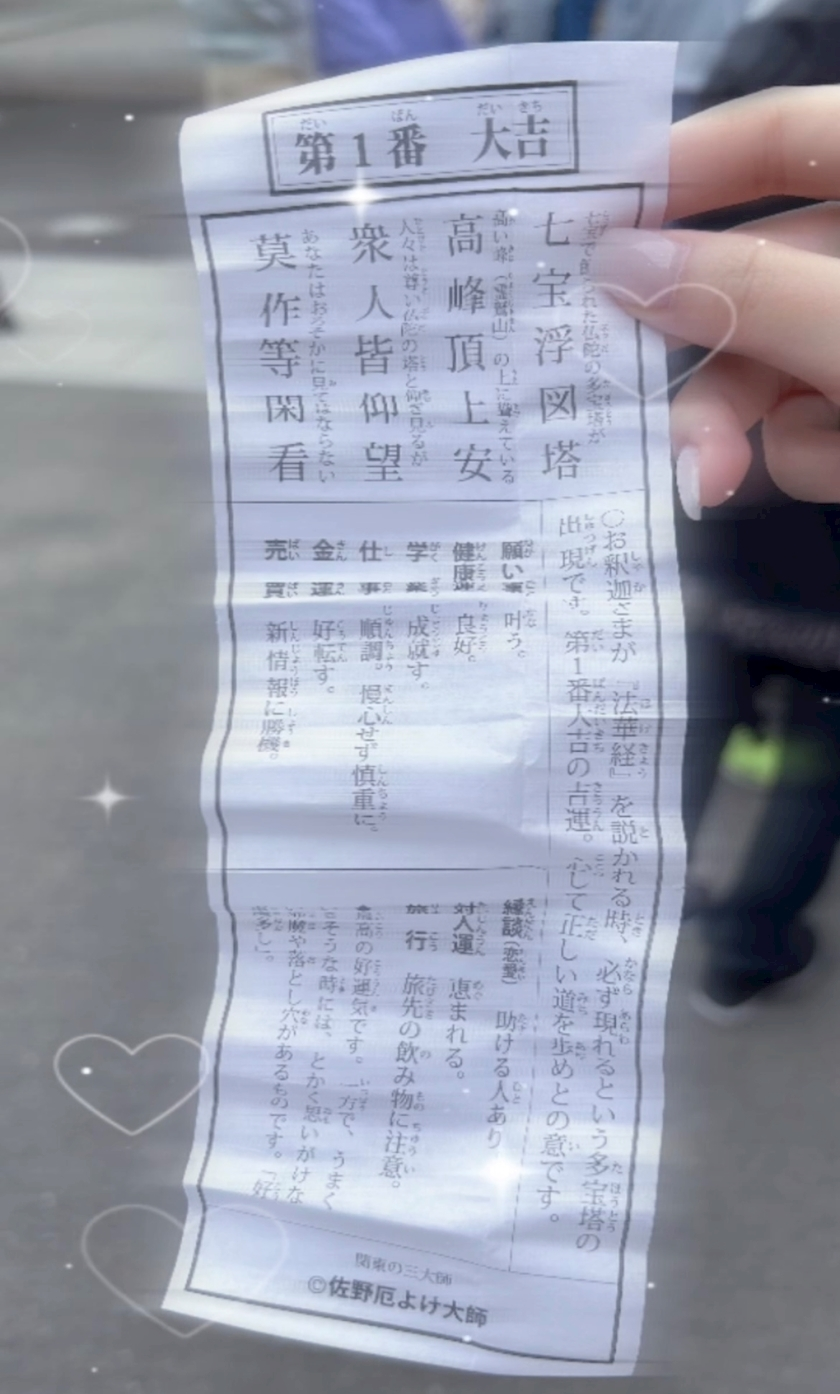 第1番 大吉
七宝浮図塔
高い峰（霊鷲山）の上に聳えている
高峰頂上安
人々は尊い仏陀の塔と仰ぎ見るが
衆人皆仰望
あなたはおろそかに見てはならない
莫作等閑看
○お釈迦さまが『法華経』を説かれる時、必ず現れるという多宝塔の
出現です。第1番大吉の吉運。心して正しい道を歩めとの意です。
願い事 叶う。
健康運 良好。
学業 成就す。
仕事 順調。慢心せず慎重に。
金運 好転す。
売買 新情報に勝機。
縁談（恋愛） 助ける人あり
対人運 恵まれる。
旅行 旅先の飲み物に注意。
最高の好運気です。一方で、うまく
そうな時には、とかく思いがけな
や落とし穴があるものです。「好
多し」。
関東の三大師
©佐野厄よけ大師